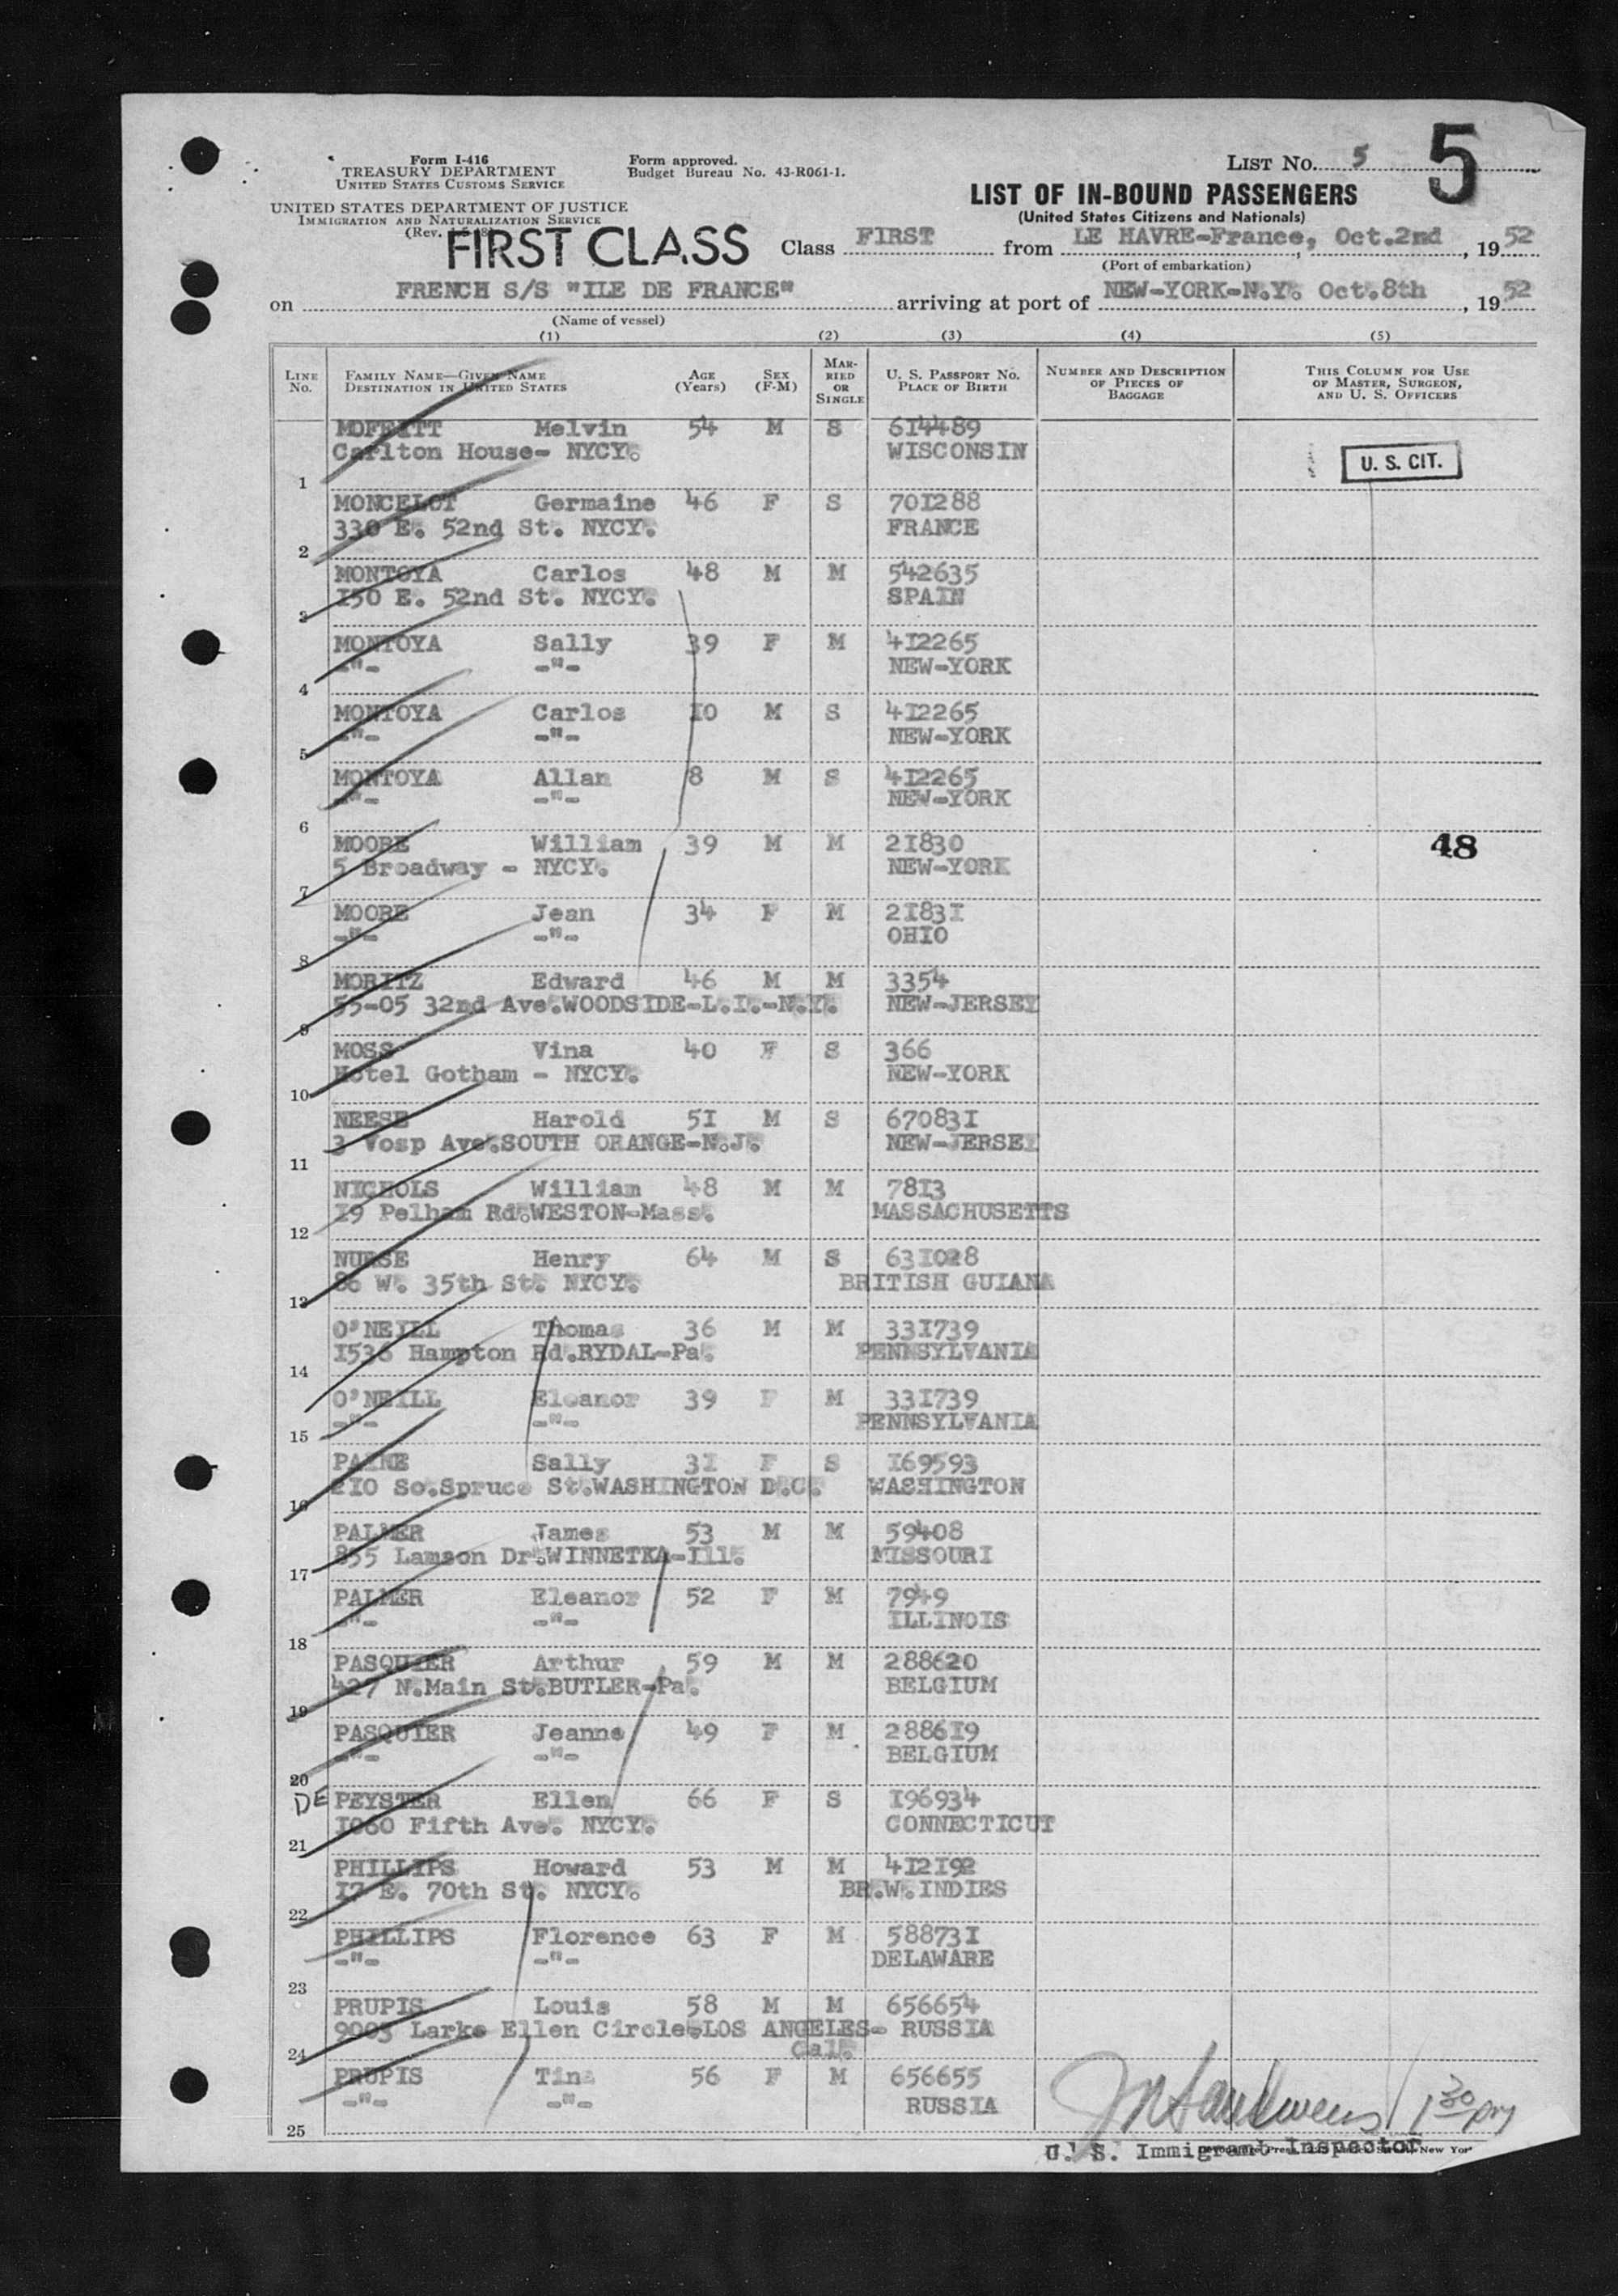 Form I-416
TREASURY DEPARTMENT
UNITED STATES CUSTOMS SERVICE
Form approved.
Budget Bureau No. 43-R061-1.
LIST NO. 5
5
UNITED STATES DEPARTMENT OF JUSTICE
IMMIGRATION AND NATURALIZATION SERVICE
(Rev.
LIST OF IN-BOUND PASSENGERS
(United States Citizens and Nationals)
FIRST CLASS
Class FIRST from LE HAVRE-France, Oct.2nd, 1952
(Port of embarkation)
on FRENCH S/S "ILE DE FRANCE" arriving at port of NEW-YORK-N.Y. Oct.8th, 1952
(Name of vessel)
(1) (2) (3) (4) (5)
LINE No. FAMILY NAME—GIVEN NAME DESTINATION IN UNITED STATES AGE (Years) SEX (F-M) MARRIED OR SINGLE U. S. PASSPORT NO. PLACE OF BIRTH NUMBER AND DESCRIPTION OF PIECES OF BAGGAGE THIS COLUMN FOR USE OF MASTER, SURGEON, AND U. S. OFFICERS
MOFFITT Melvin 54 M S 614489
Carlton House- NYCY. WISCONSIN
U. S. CIT.
1
MONCELOT Germaine 46 F S 701288
330 E. 52nd St. NYCY. FRANCE
2
MONTOYA Carlos 48 M M 542635
150 E. 52nd St. NYCY. SPAIN
3
MONTOYA Sally 39 F M 412265
-"- -"- NEW-YORK
4
MONTOYA Carlos 10 M S 412265
-"- -"- NEW-YORK
5
MONTOYA Allan 8 M S 412265
-"- -"- NEW-YORK
6
MOORE William 39 M M 21830
5 Broadway - NYCY. NEW-YORK
48
7
MOORE Jean 34 F M 21831
-"- -"- OHIO
8
MORITZ Edward 46 M M 3354
55-05 32nd Ave.WOODSIDE-L.I.-N.Y. NEW-JERSEY
9
MOSS Vina 40 F S 366
Hotel Gotham - NYCY. NEW-YORK
10
NEESE Harold 51 M S 670831
3 Vosp Ave.SOUTH ORANGE-N.J. NEW-JERSEY
11
NICHOLS William 48 M M 7813
19 Pelham Rd.WESTON-Mass. MASSACHUSETTS
12
NURSE Henry 64 M S 631028
86 W. 35th St. NYCY. BRITISH GUIANA
13
O'NEILL Thomas 36 M M 331739
1536 Hampton Rd.RYDAL-Pa. PENNSYLVANIA
14
O'NEILL Eleanor 39 F M 331739
-"- -"- PENNSYLVANIA
15
PAINE Sally 31 F S 169593
210 So.Spruce St.WASHINGTON D.C. WASHINGTON
16
PALMER James 53 M M 59408
855 Lamson Dr.WINNETKA-Ill. MISSOURI
17
PALMER Eleanor 52 F M 7949
-"- -"- ILLINOIS
18
PASQUIER Arthur 59 M M 288620
427 N.Main St.BUTLER-Pa. BELGIUM
19
PASQUIER Jeanne 49 F M 288619
-"- -"- BELGIUM
20
DE PEYSTER Ellen 66 F S 196934
1060 Fifth Ave. NYCY. CONNECTICUT
21
PHILLIPS Howard 53 M M 412192
17 E. 70th St. NYCY. BR.W.INDIES
22
PHILLIPS Florence 63 F M 588731
-"- -"- DELAWARE
23
PRUPIS Louis 58 M M 656654
9003 Larke Ellen Circle.LOS ANGELES- RUSSIA
Cal.
24
PRUPIS Tina 56 F M 656655
-"- -"- RUSSIA
1 30 pm
25
U. S. Immigrant Inspector New Yor